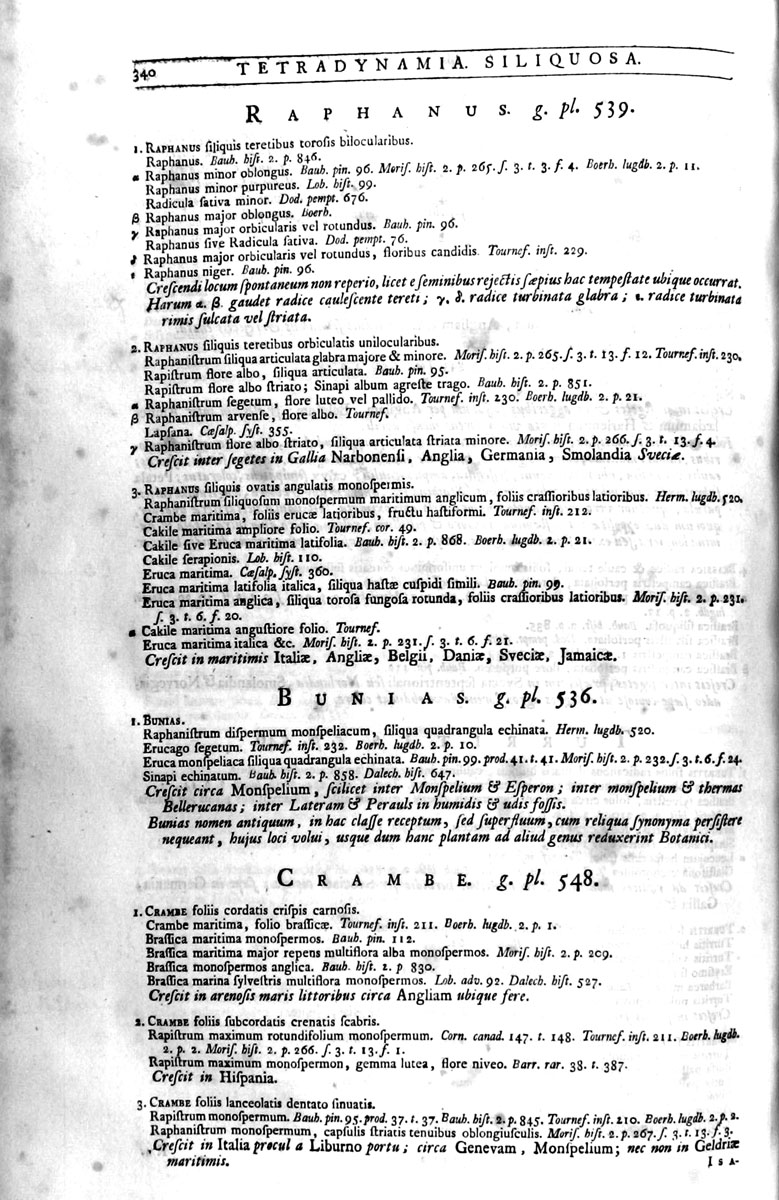 340 TETRADYNAMIA. SILIQUOSA.
RAPHANUS. g. pl. 539.
1. RAPHANUS ſiliquis teretibus toroſis bilocularibus.
Raphanus. Bauh. hiſt. 2. p. 846.
α Raphanus minor oblongus. Bauh. pin. 96. Moriſ. hiſt. 2. p. 265. ſ. 3. t. 3. f. 4. Boerh. lugdb. 2. p. 11.
Raphanus minor purpureus. Lob. hiſt. 99.
Radicula ſativa minor. Dod. pempt. 676.
β Raphanus major oblongus. Boerh.
γ Raphanus major orbicularis vel rotundus. Bauh. pin. 96.
Raphanus ſive Radicula ſativa. Dod. pempt. 76.
δ Raphanus major orbicularis vel rotundus, floribus candidis. Tournef. inſt. 229.
ε Raphanus niger. Bauh. pin. 96.
Creſcendi locum ſpontaneum non reperio, licet e ſeminibus rejectis ſæpius hac tempeſtate ubique occurrat.
Harum α. β. gaudet radice cauleſcente tereti; γ. δ. radice turbinata glabra; ε. radice turbinata
rimis ſulcata vel ſtriata.
2. RAPHANUS ſiliquis teretibus orbiculatis unilocularibus.
Raphaniſtrum ſiliqua articulata glabra majore & minore. Moriſ. hiſt. 2. p. 265. ſ. 3. t. 13. f. 12. Tournef. inſt. 230.
Rapiſtrum flore albo, ſiliqua articulata. Bauh. pin. 95.
Rapiſtrum flore albo ſtriato; Sinapi album agreſte trago. Bauh. hiſt. 2. p. 851.
α Raphaniſtrum ſegetum, flore luteo vel pallido. Tournef. inſt. 230. Boerh. lugdb. 2. p. 21.
β Raphaniſtrum arvenſe, flore albo. Tournef.
Lapſana. Cæſalp. ſyſt. 355.
γ Raphaniſtrum flore albo ſtriato, ſiliqua articulata ſtriata minore. Moriſ. hiſt. 2. p. 266. ſ. 3. t. 13. f. 4
Creſcit inter ſegetes in Gallia Narbonenſi, Anglia, Germania, Smolandia Sveciæ.
3. RAPHANUS ſiliquis ovatis angulatis monoſpermis.
Raphaniſtrum ſiliquoſum monoſpermum maritimum anglicum, foliis craſſioribus latioribus. Herm. lugdb. 520.
Crambe maritima, foliis erucæ latioribus, fructu haſtiformi. Tournef. inſt. 212.
Cakile maritima ampliore folio. Tournef. cor. 49.
Cakile ſive Eruca maritima latifolia. Bauh. hiſt. 2. p. 868. Boerh. lugdb. 2. p. 21.
Cakile ſerapionis. Lob. hiſt. 110.
Eruca maritima. Cæſalp. ſyſt. 360.
Eruca maritima latifolia italica, ſiliqua haſtæ cuſpidi ſimili. Bauh. pin. 99.
Eruca maritima anglica, ſiliqua toroſa fungoſa rotunda, foliis craſſioribus latioribus. Moriſ. hiſt. 2. p. 231.
ſ. 3. t. 6. f. 20.
α Cakile maritima anguſtiore folio. Tournef.
Eruca maritima italica &c. Moriſ. hiſt. 2. p. 231. ſ. 3. t. 6. f. 21.
Creſcit in maritimis Italiæ, Angliæ, Belgii, Daniæ, Sveciæ, Jamaicæ.
BUNIAS. g. pl. 536.
1. BUNIAS.
Raphaniſtrum diſpermum monſpeliacum, ſiliqua quadrangula echinata. Herm. lugdb. 520.
Erucago ſegetum. Tournef. inſt. 232. Boerh. lugdb. 2. p. 10.
Eruca monſpeliaca ſiliqua quadrangula echinata. Bauh. pin. 99. prod. 41. t. 41. Moriſ. hiſt. 2. p. 232. ſ. 3. t. 6. f. 24.
Sinapi echinatum. Bauh. hiſt. 2. p. 858. Dalech. hiſt. 647.
Creſcit circa Monſpelium, ſcilicet inter Monſpelium & Eſperon; inter monſpelium & thermas
Bellerucanas; inter Lateram & Perauls in humidis & udis foſſis.
Bunias nomen antiquum, in hac claſſe receptum, ſed ſuperfluum, cum reliqua ſynonyma perſiſtere
nequeant, hujus loci volui, usque dum hanc plantam ad aliud genus reduxerint Botanici.
CRAMBE. g. pl. 548.
1. CRAMBE foliis cordatis criſpis carnoſis.
Crambe maritima, folio braſſicæ. Tournef. inſt. 211. Boerh. lugdb. 2. p. 1.
Braſſica maritima monoſpermos. Bauh. pin. 112.
Braſſica maritima major repens multiflora alba monoſpermos. Moriſ. hiſt. 2. p. 209.
Braſſica monoſpermos anglica. Bauh. hiſt. 2. p 830.
Braſſica marina ſylveſtris multiflora monoſpermos. Lob. adv. 92. Dalech. hiſt. 527.
Creſcit in arenoſis maris littoribus circa Angliam ubique fere.
2. CRAMBE foliis ſubcordatis crenatis ſcabris.
Rapiſtrum maximum rotundifolium monoſpermum. Corn. canad. 147. t. 148. Tournef. inſt. 211. Boerh. lugdb.
2. p. 2. Moriſ. hiſt. 2. p. 266. ſ. 3. t. 13. f. 1.
Rapiſtrum maximum monoſpermon, gemma lutea, flore niveo. Barr. rar. 38. t. 387.
Creſcit in Hiſpania.
3. CRAMBE foliis lanceolatis dentato ſinuatis.
Rapiſtrum monoſpermum. Bauh. pin. 95. prod. 37. t. 37. Bauh. hiſt. 2. p. 845. Tournef. inſt. 210. Boerh. lugdb. 2. p. 2.
Raphaniſtrum monoſpermum, capſulis ſtriatis tenuibus oblongiuſculis. Moriſ. hiſt. 2. p. 267. ſ. 3. t. 13. f. 3.
Creſcit in Italia procul a Liburno portu; circa Genevam, Monſpelium; nec non in Geldriæ
maritimis.
ISA-